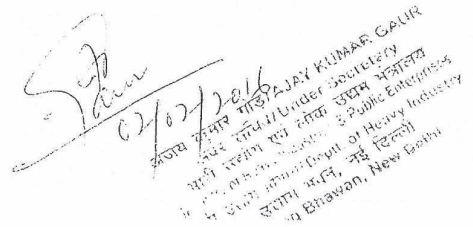 Gaur
02/02/2016
अजय कुमार गौड़/AJAY KUMAR GAUR
अवर सचिव/Under Secretary
भारी उद्योग एवं लोक उद्यम मंत्रालय
& Public Enterprises
Deptt. of Heavy Industry
उद्योग भवन, नई दिल्ली
Bhawan, New Delhi